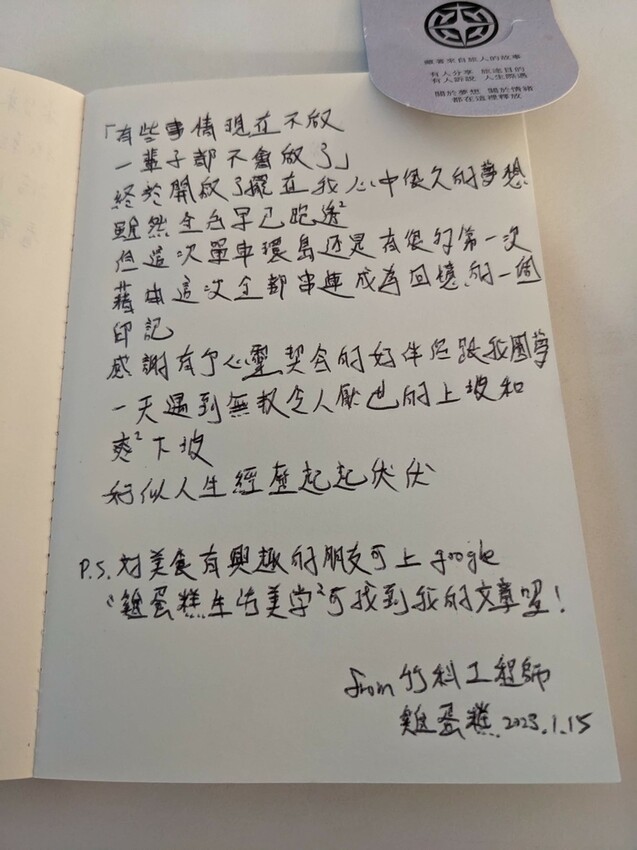 藏著來自旅人的故事
有人分享 旅途目的
有人訴說 人生際遇
關於夢想 關於情緒
都在這裡釋放
「有些事情現在不做
一輩子都不會做了」
終於開啟了擺在我心中很久的夢想
雖然全台早已跑透²
但這次單車環島還是有很多第一次
藉由這次全部串連成為回憶的一個
印記
感謝有個心靈契合的好伴侶跟我圓夢
一天遇到無數令人厭世的上坡和
爽²下坡
好似人生經歷起起伏伏
P.S. 對美食有興趣的朋友可上 google
"雞蛋糕生活美學"可找到我的文章喔!
from 竹科工程師
雞蛋糕 2023.1.15